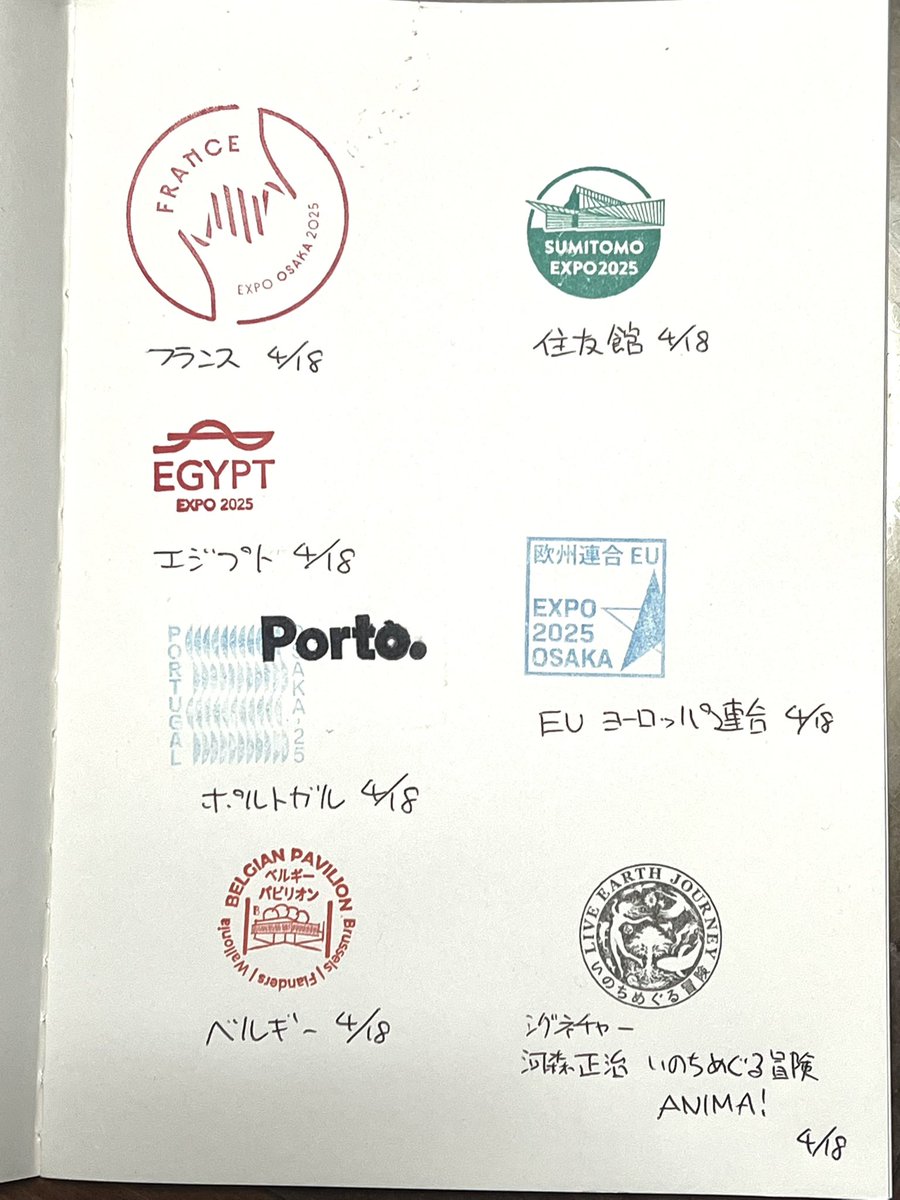 FRANCE
EXPO OSAKA 2025
フランス 4/18
SUMITOMO
EXPO2025
住友館 4/18
EGYPT
EXPO 2025
エジプト 4/18
欧州連合 EU
EXPO
2025
OSAKA
EU ヨーロッパ連合 4/18
PORTUGAL
Porto.
OSAKA,25
ポルトガル 4/18
BELGIAN PAVILION
ベルギー
パビリオン
Brussels | Flanders | Wallonia
ベルギー 4/18
LIVE EARTH JOURNEY
いのちめぐる冒険
シグネチャー
河森正治 いのちめぐる冒険
ANIMA!
4/18